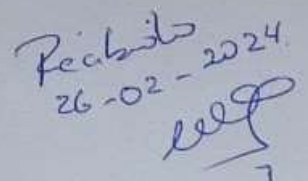 Recibido
26-02-2024.